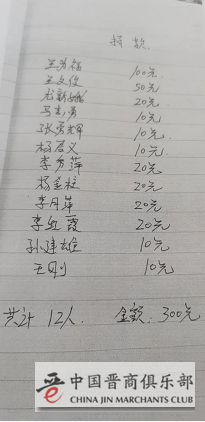 捐款
王芳福 100元
王文俊 50元
尤新 20元
马志勇 10元
张秀辉 10元
杨启义 10元
李秀萍 20元
杨金柱 20元
李月华 20元
李红霞 20元
孙建雄 10元
王刚 10元
共计 12人. 金额: 300元
晋 中国晋商俱乐部
CHINA JIN MERCHANTS CLUB